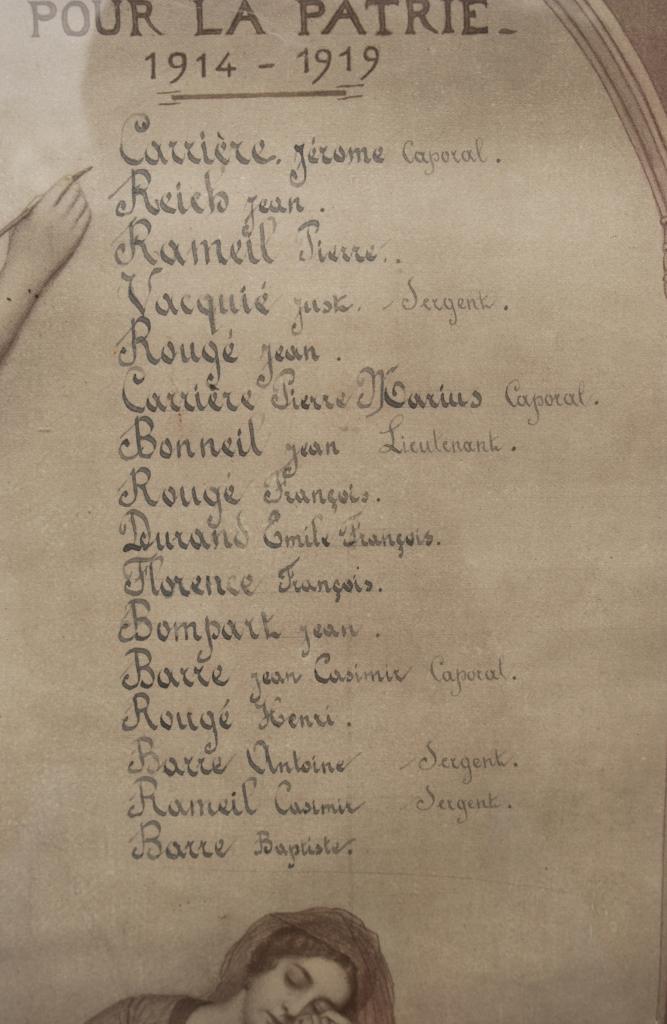 POUR LA PATRIE_
1914 - 1919
Carrière. Jérome Caporal.
Reich Jean.
Rameil Pierre..
Vacquié Just. Sergent.
Rougé Jean.
Carrière Pierre Marius Caporal.
Bonneil Jean Lieutenant.
Rougé François.
Durand Emile François.
Florence François.
Bompart Jean.
Barre Jean Casimir Caporal.
Rougé Henri.
Barre Antoine Sergent.
Rameil Casimir Sergent.
Barre Baptiste.